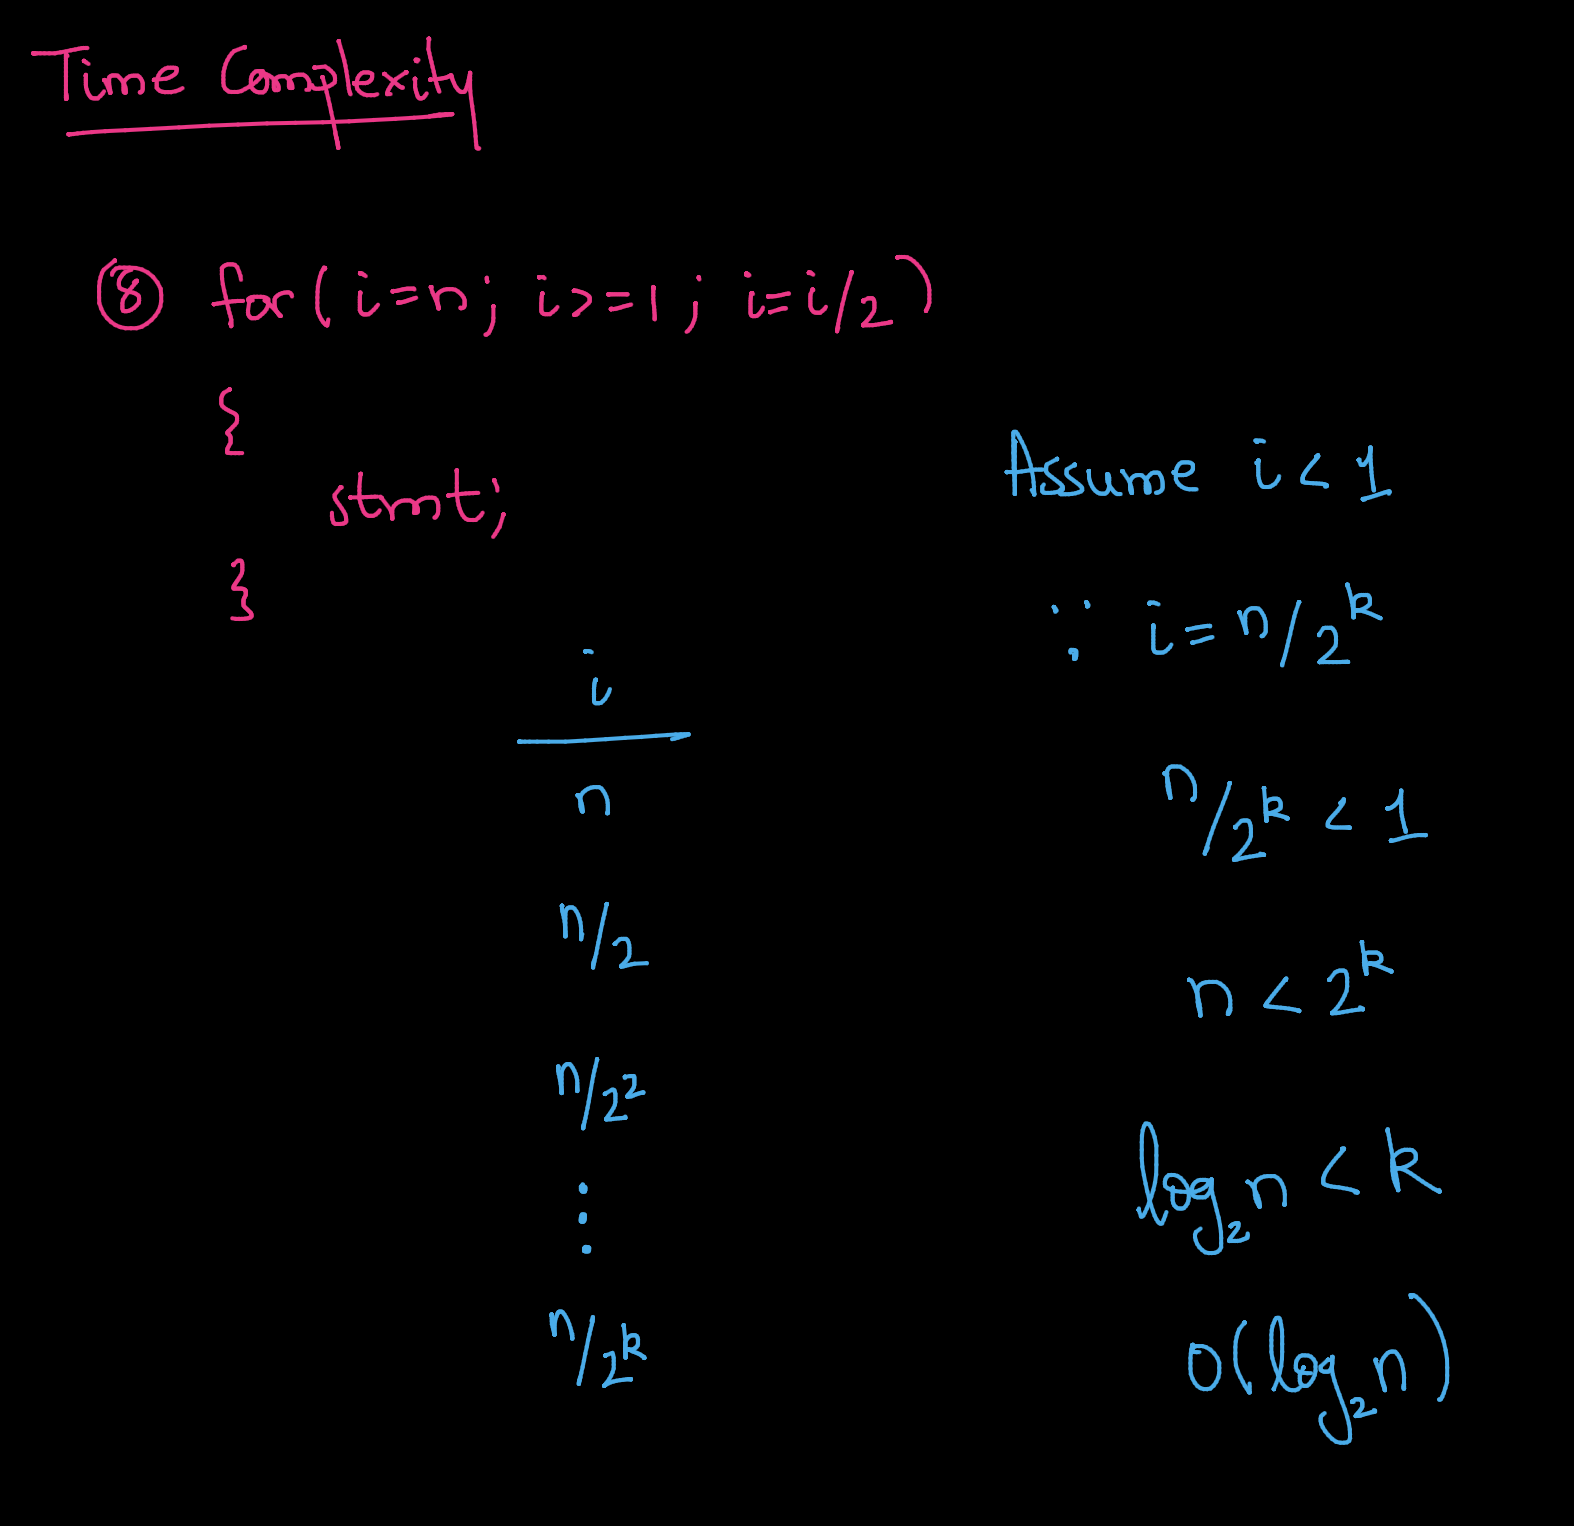 Time Complexity
⑧ for( i=n; i>=1; i=i/2 )
{
stmt;
}
i
n
n/2
n/2²
⋮
n/2ᵏ
Assume i < 1
∵ i = n/2ᵏ
n/2ᵏ < 1
n < 2ᵏ
log₂n < k
O(log₂n)